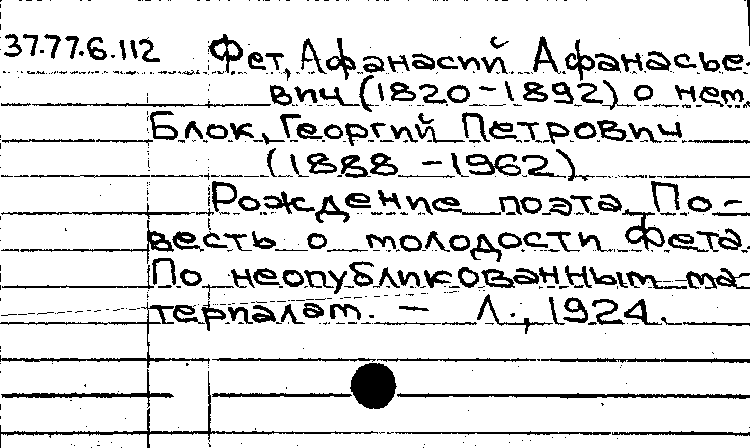 37.77.6.112 Фет, Афанасий Афанасье-
вич (1820-1892) о нем.
Блок, Георгий Петрович
(1888 - 1962).
Рождение поэта. По-
весть о молодости Фета.
По неопубликованным ма-
териалам. — Л., 1924.